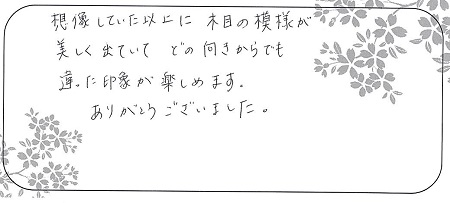 想像していた以上に 木目の模様が
美しく出ていて どの向きからでも
違った印象が楽しめます.
ありがとうございました。